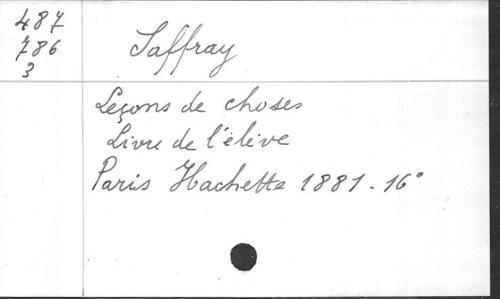 487
786
3
Saffray
Leçons de choses
Livre de l'élève
Paris Hachette 1881-16°